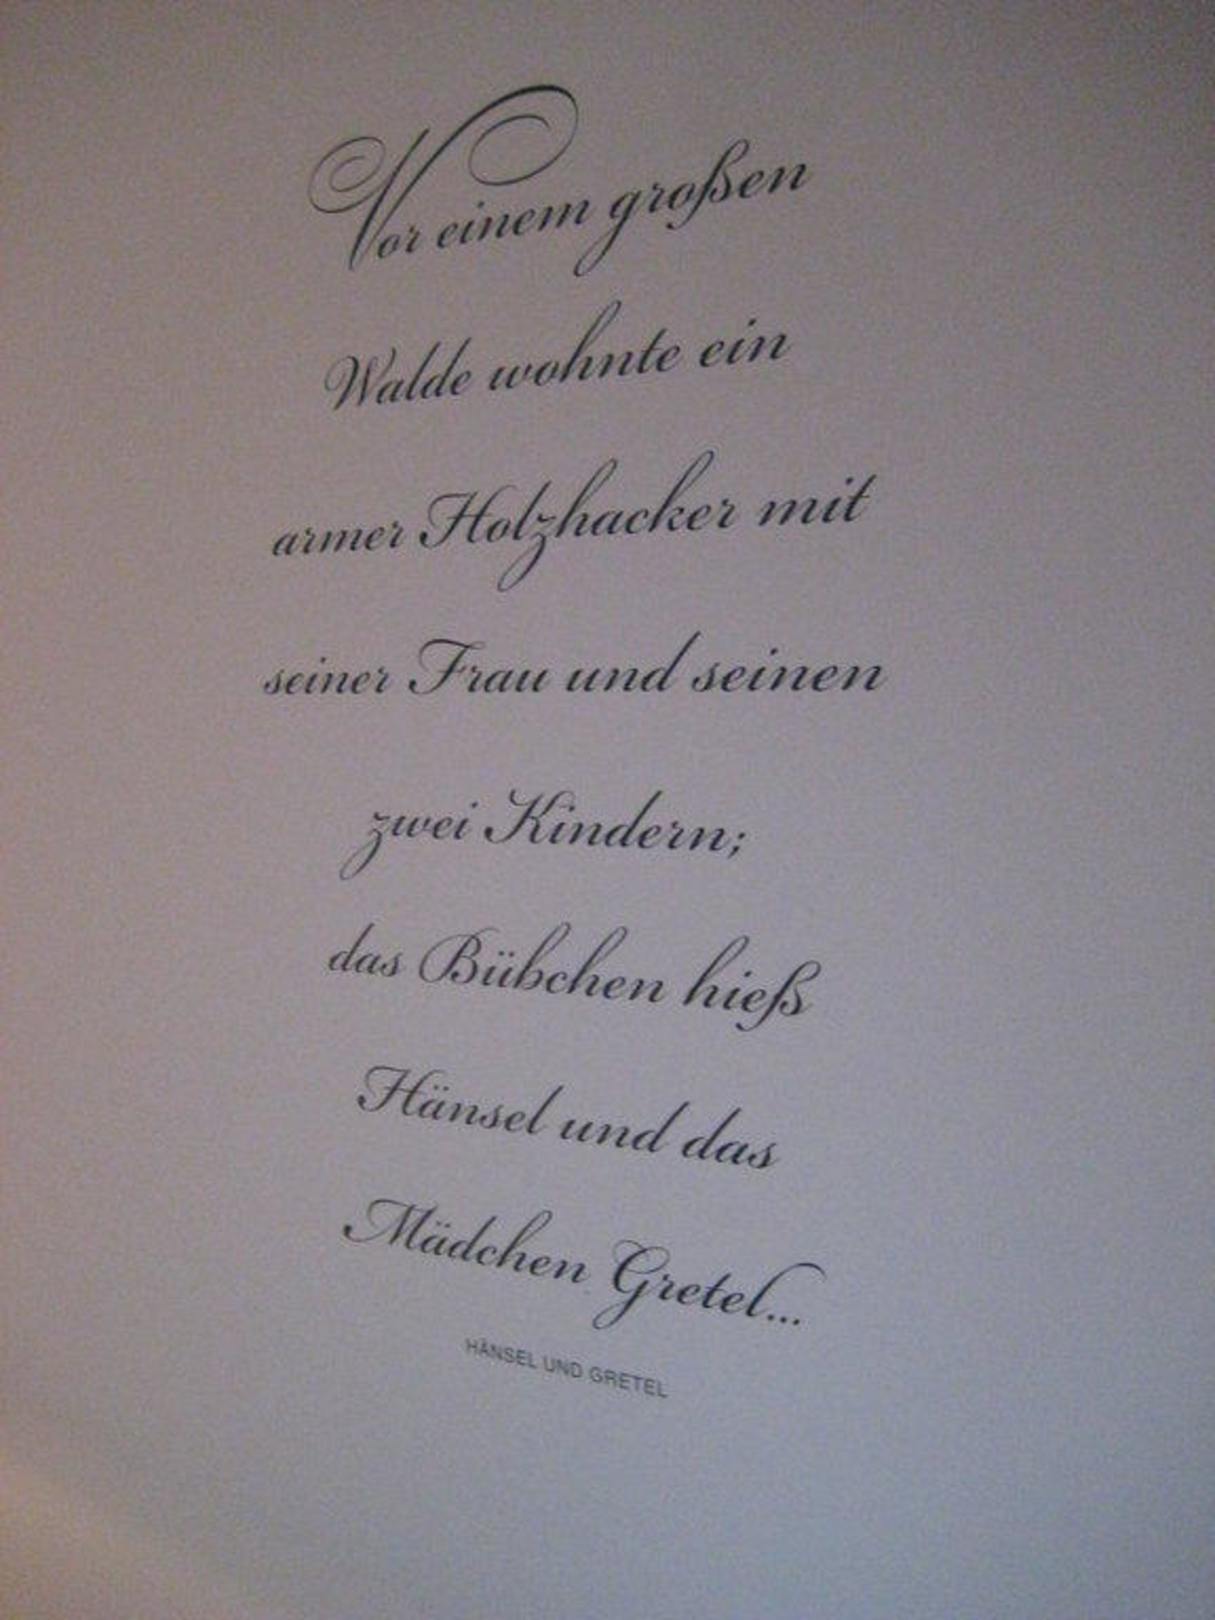 Vor einem großen
Walde wohnte ein
armer Holzhacker mit
seiner Frau und seinen
zwei Kindern;
das Bübchen hieß
Hänsel und das
Mädchen Gretel...
HÄNSEL UND GRETEL